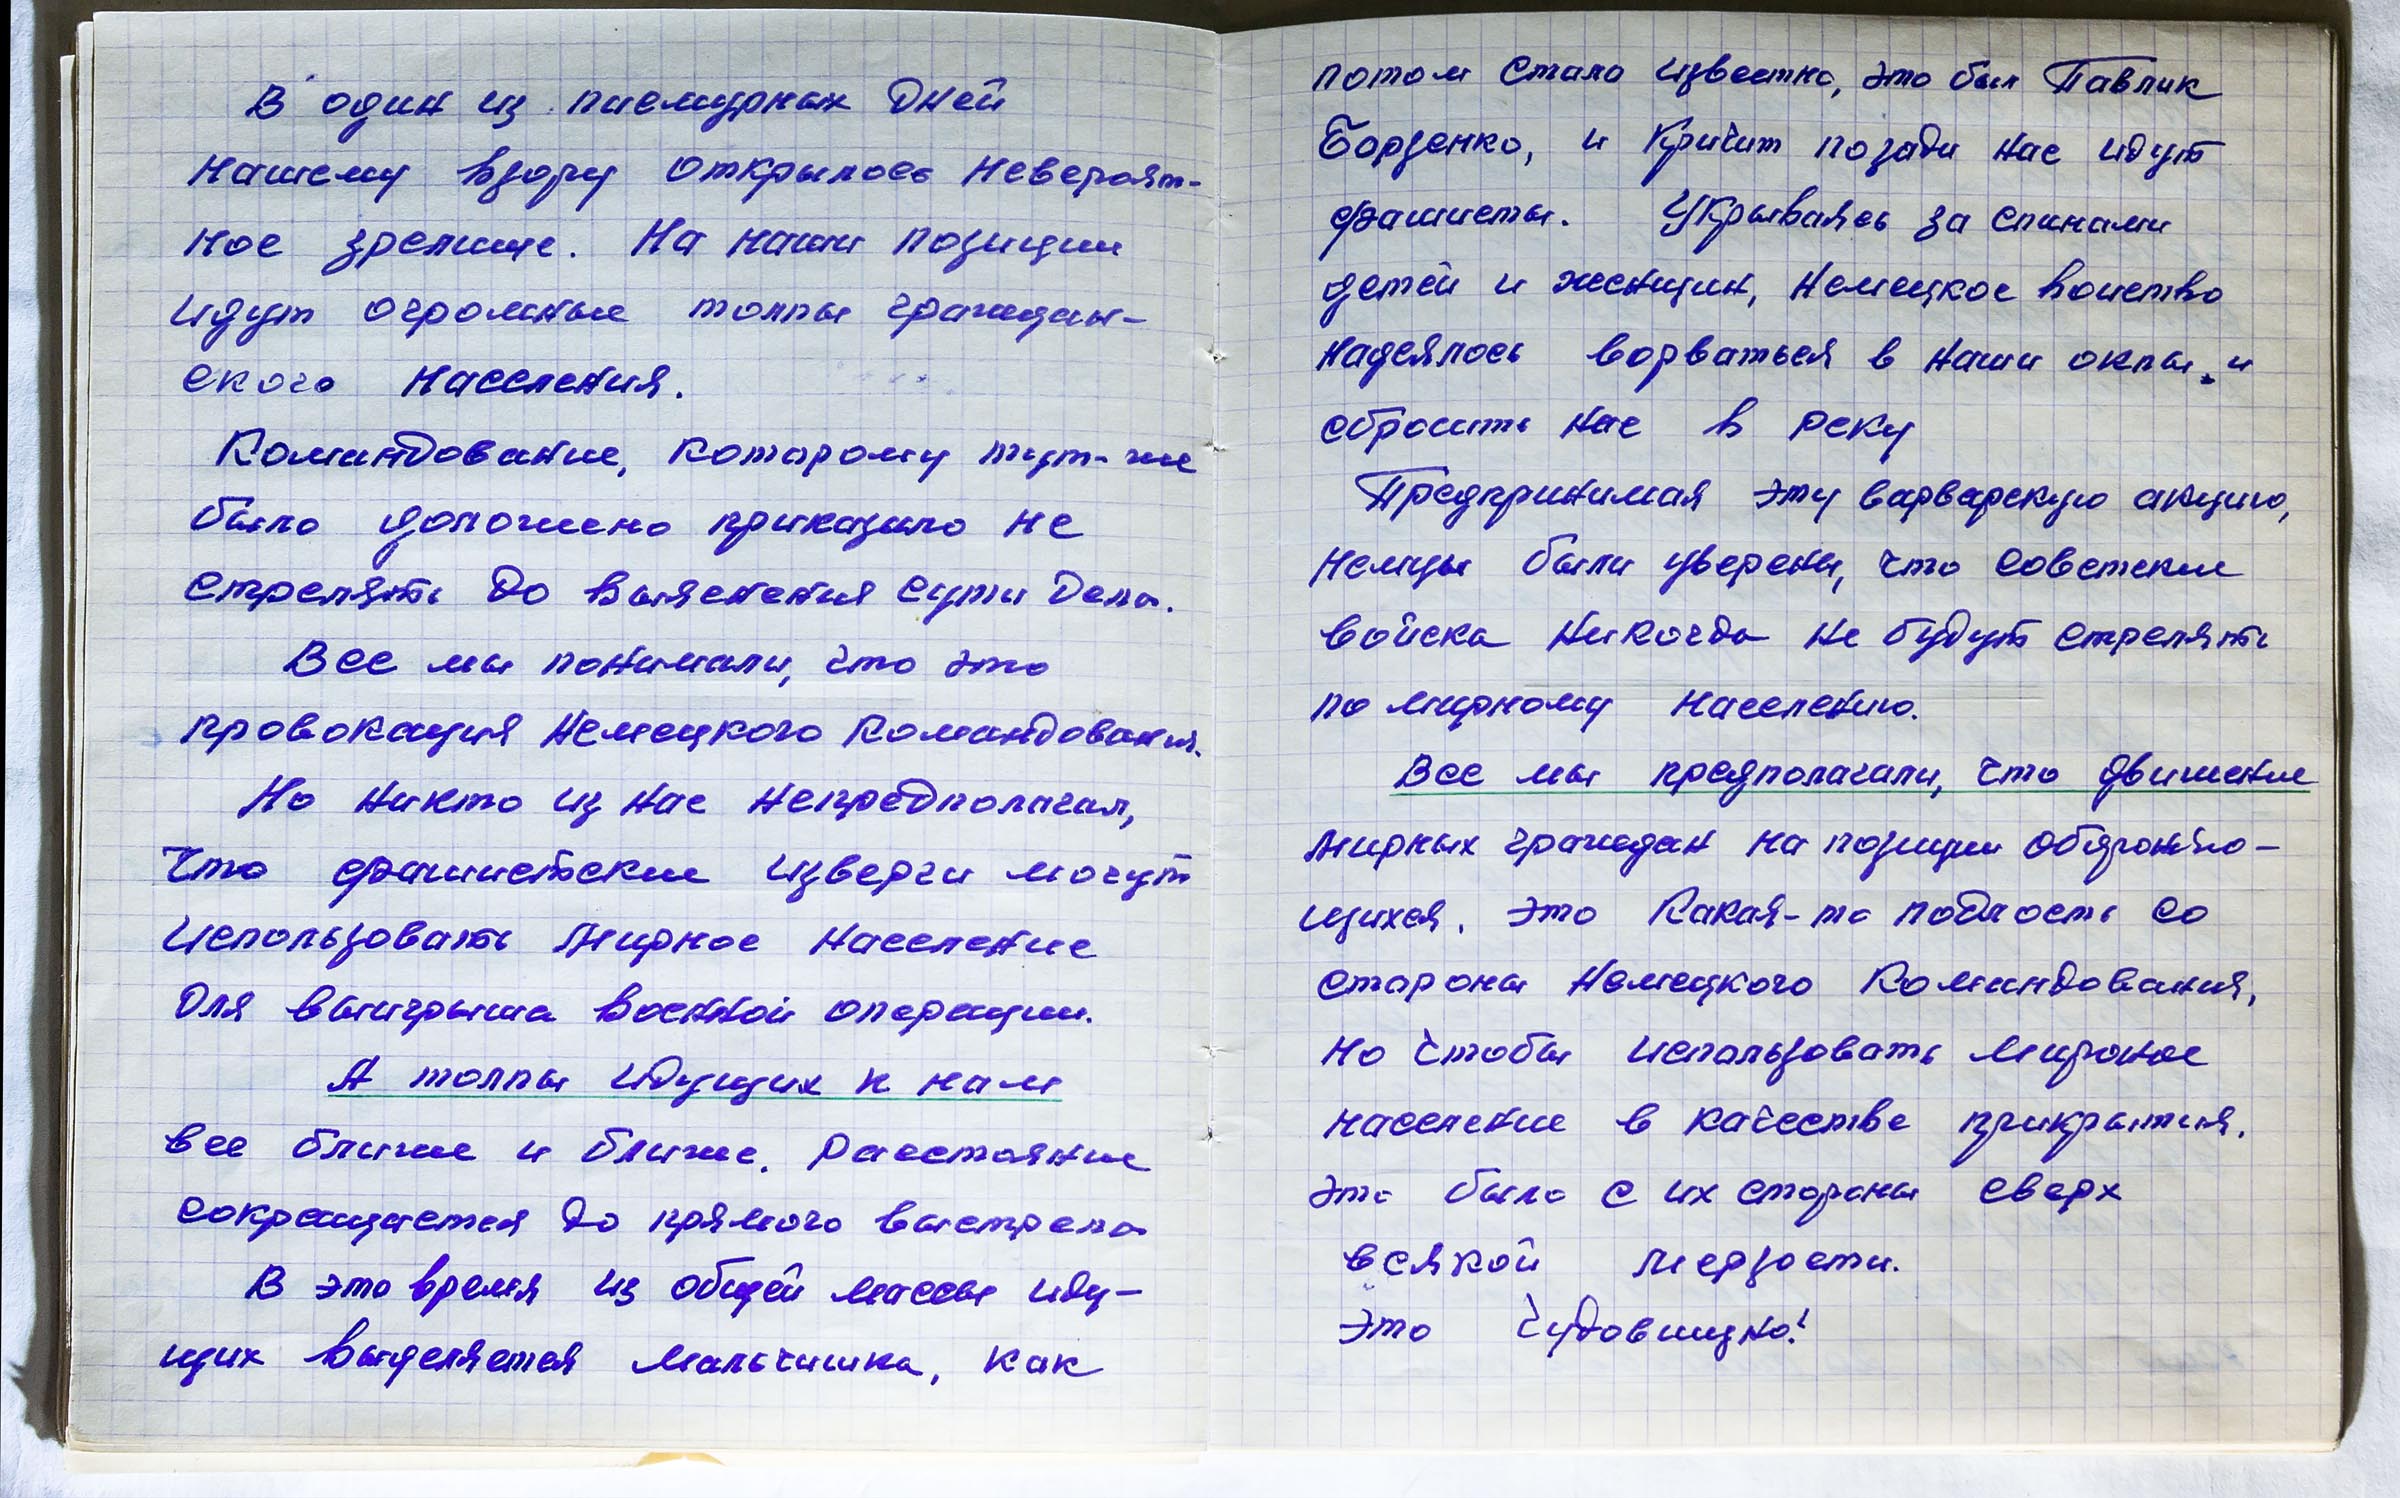 В один из пасмурных дней
нашему взору открылось невероят-
ное зрелище. На наши позиции
идут огромные толпы граждан-
ского населения.
Командование, которому тут-же
было доложено приказало не
стрелять до выяснения сути дела.
Все мы понимали, что это
провокация немецкого командования.
Но никто из нас непредполагал,
что фашистские изверги могут
использовать мирное население
для выигрыша военной операции.
А толпы идущих к нам
все ближе и ближе. Расстояние
сокращается до прямого выстрела
В это время из общей массы иду-
щих выделяется мальчишка, как
потом стало известно, это был Павлик
Борзенко, и кричит позади нас идут
фашисты. Укрываясь за спинами
детей и женщин, немецкое воинство
надеялось ворваться в наши окпы. и
сбросить нас в реку
Предпринимая эту варварскую акцию,
немцы были уверены, что советские
войска никогда не будут стрелять
по мирному населению.
Все мы предполагали, что движение
мирных граждан на позиции обороняю-
щихся. это какая-то подлость со
стороны немецкого командования,
но чтобы использовать мирное
население в качестве прикрытия.
это было с их стороны сверх
всякой мерзости.
Это чудовищно!